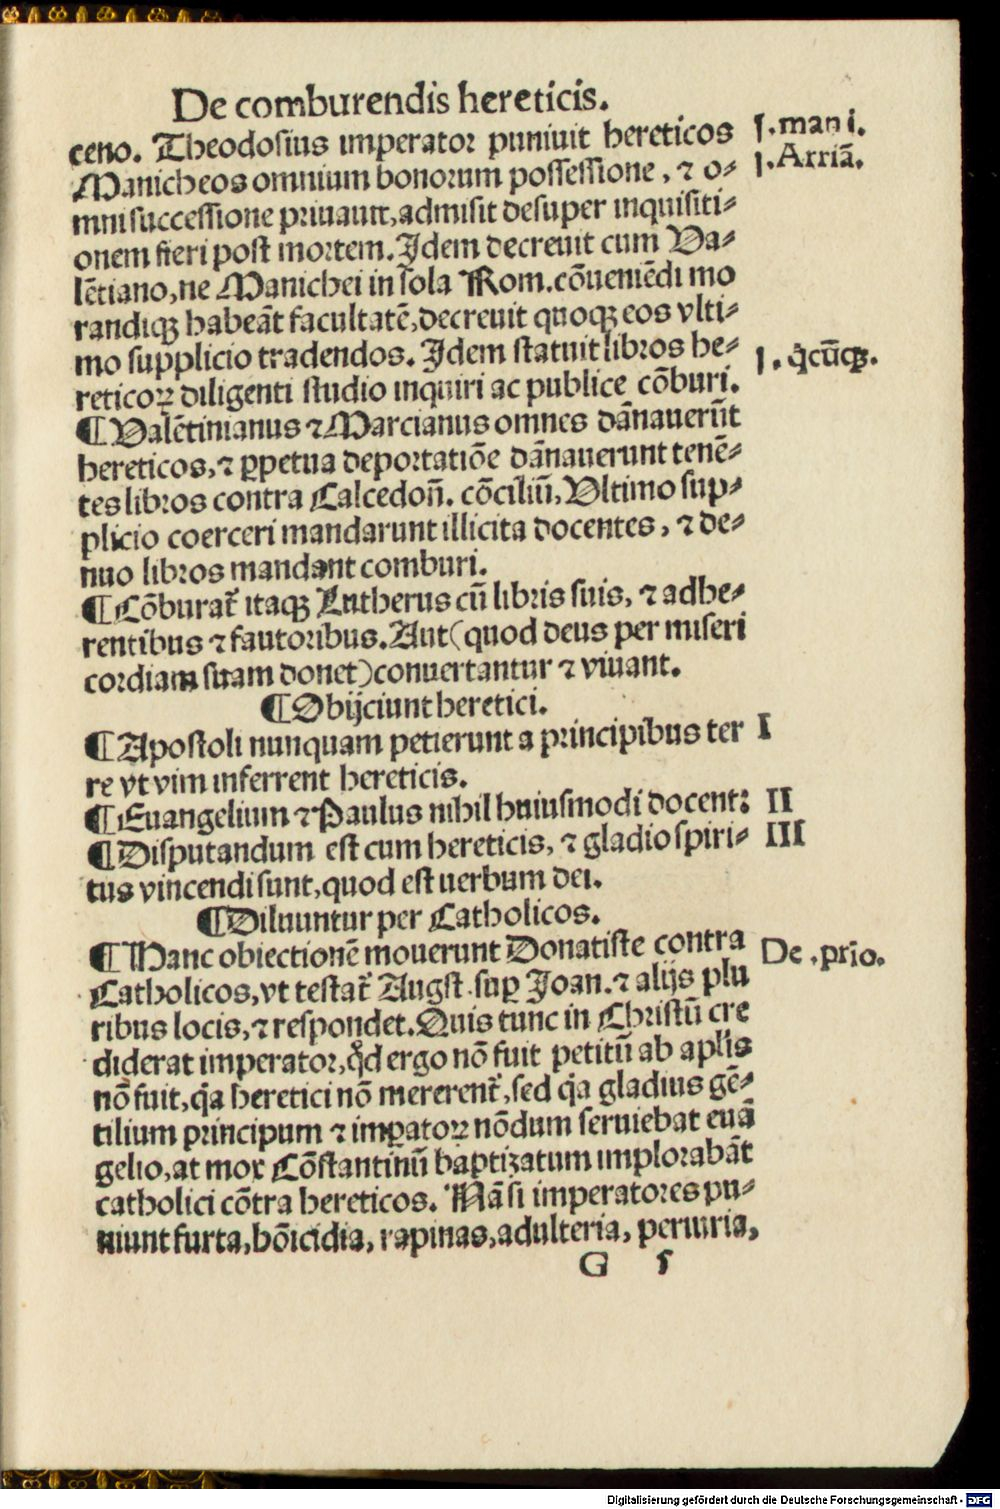 De comburendis hereticis.
ceno. Theodosius imperator puniuit hereticos
ſ. mani.
Manicheos omnium bonorum possessione, ⁊ o⸗
ſ. Arriā.
mni successione priuauit, admisit desuper inquisiti⸗
onem fieri post mortem. Idem decreuit cum Va⸗
lētiano, ne Manichei in sola Rom. cōueniēdi mo
randiqꝫ habeāt facultatē, decreuit quoqꝫ eos vlti⸗
mo supplicio tradendos. Idem statuit libros he⸗
ſ. q̇cūqꝫ.
reticoꝝ diligenti studio inquiri ac publice cōburi.
¶ Valētinianus ⁊ Marcianus omnes dānauerūt
hereticos, ⁊ ꝑpetua deportatiōe dānauerunt tenē⸗
tes libros contra Calcedoñ. cōciliū, Vltimo sup⸗
plicio coerceri mandarunt illicita docentes, ⁊ de⸗
nuo libros mandant comburi.
¶ Cōburat᷑ itaqꝫ Lutherus cū libris suis, ⁊ adhe⸗
rentibus ⁊ fautoribus. Aut (quod deus per miseri
cordiam suam donet) conuertantur ⁊ viuant.
¶ Obijciunt heretici.
¶ Apostoli nunquam petierunt a principibus ter
I
re vt vim inferrent hereticis.
¶ Euangelium ⁊ Paulus nihil huiusmodi docent:
II
¶ Disputandum est cum hereticis, ⁊ gladio spiri⸗
III
tus vincendi sunt, quod est uerbum dei.
¶ Diluuntur per Catholicos.
¶ Hanc obiectionē mouerunt Donatiste contra
De .prio.
Catholicos, vt testat᷑ Augst. suꝑ Joan. ⁊ alijs plu
ribus locis, ⁊ respondet. Quis tunc in Christū cre
diderat imperator, qd̓ ergo nō fuit petitū ab aplis
nō fuit, q̇a heretici nō mererent᷑, sed q̇a gladius gē⸗
tilium principum ⁊ imꝑatoꝝ nōdum seruiebat euā
gelio, at mox Cōstantinū baptizatum implorabāt
catholici cōtra hereticos. Nā si imperatores pu⸗
niunt furta, hōicidia, rapinas, adulteria, periuria,
G 5
Digitalisierung gefördert durch die Deutsche Forschungsgemeinschaft - DFG